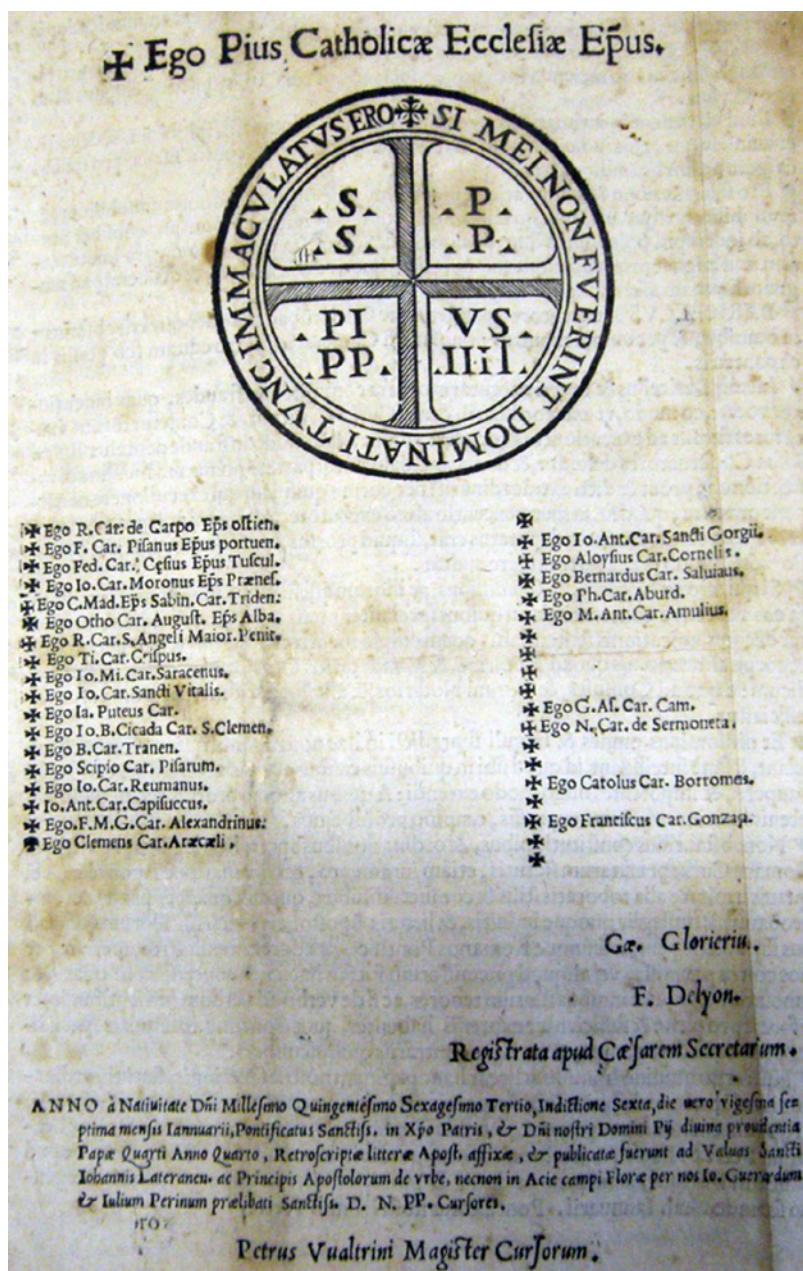 ✠ Ego Pius Catholicæ Ecclesiæ Ep̃us.
✠ SI MEI NON FVERINT DOMINATI TVNC IMMACVLATVS ERO
S. P.
S. P.
PI VS
PP. IIII
✠ Ego R. Car. de Carpo Ep̃s ostien.
✠ Ego F. Car. Pisanus Ep̃us portuen.
✠ Ego Fed. Car. Cęsius Ep̃us Tuscul.
✠ Ego Io. Car. Moronus Ep̃s Prænes.
✠ Ego C. Mad. Ep̃s Sabin. Car. Triden.
✠ Ego Otho Car. August. Ep̃s Alba.
✠ Ego R. Car. S. Angeli Maior. Penit.
✠ Ego Ti. Car. Crispus.
✠ Ego Io. Mi. Car. Saracenus.
✠ Ego Io. Car. Sancti Vitalis.
✠ Ego Ia. Puteus Car.
✠ Ego Io. B. Cicada Car. S. Clemen.
✠ Ego B. Car. Tranen.
✠ Ego Scipio Car. Pisarum.
✠ Ego Io. Car. Reumanus.
✠ Io. Ant. Car. Capisuccus.
✠ Ego. F. M. G. Car. Alexandrinus.
✠ Ego Clemens Car. Aræcæli.
✠ Ego Io. Ant. Car. Sancti Gorgii.
✠ Ego Aloysius Car. Cornelis.
✠ Ego Bernardus Car. Saluiaus.
✠ Ego Ph. Car. Aburd.
✠ Ego M. Ant. Car. Amulius.
✠ Ego G. As. Car. Cam.
✠ Ego N. Car. de Sermoneta.
✠ Ego Catolus Car. Borromes.
✠ Ego Franciscus Car. Gonzag.
Cæ. Glorieriu.
F. Delyon.
Registrata apud Cæsarem Secretarum.
ANNO à Natiuitate Dñi Millesimo Quingentesimo Sexagesimo Tertio, Indictione Sexta, die uero vigesima sep
ptima mensis Iannuarii, Pontificatus Sanctiss. in Xp̃o Patris, & Dñi nostri Domini Pij diuina prouidentia
Papæ Quarti Anno Quarto, Retroscriptæ litteræ Apost. affixæ, & publicatæ fuerunt ad Valuas Sancti
Iohannis Lateraneu. ac Principis Apostolorum de vrbe, necnon in Acie campi Floræ per nos Io. Guerardum
& Iulium Perinum prælibati Sanctiss. D. N. PP. Cursores.
Petrus Vualtrini Magister Cursorum.